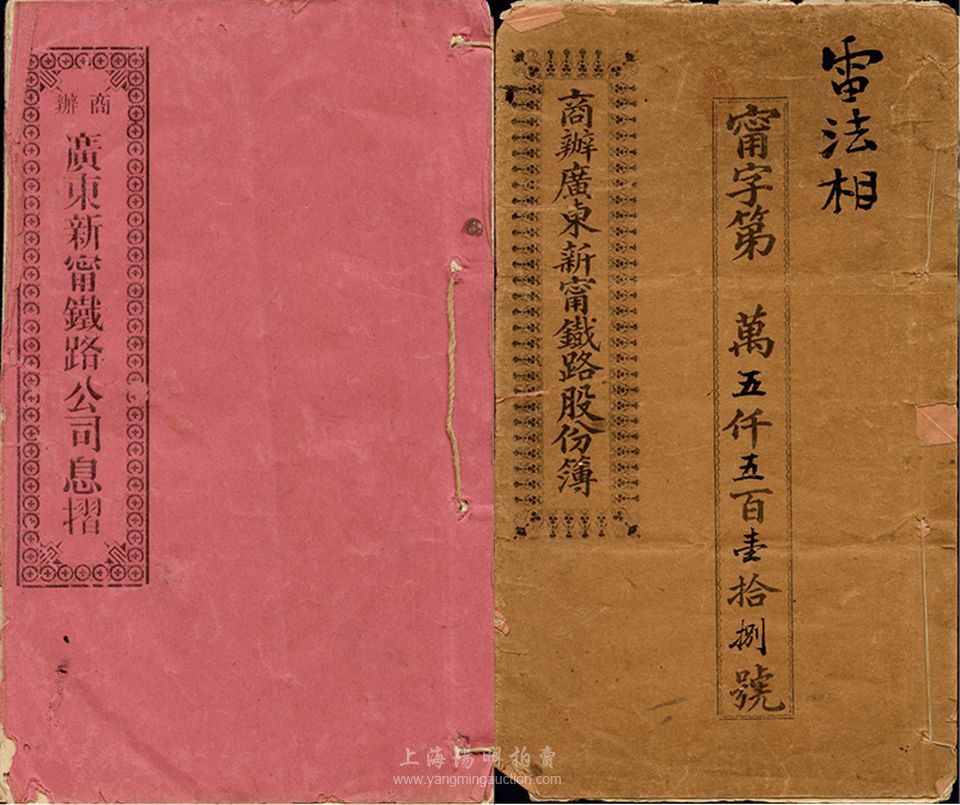 商辦
廣東新甯鐵路公司息摺
雷法相
甯字第 萬五仟五百壹拾捌號
商辦廣東新甯鐵路股份簿
上海陽明拍賣
www.yangmingauction.com